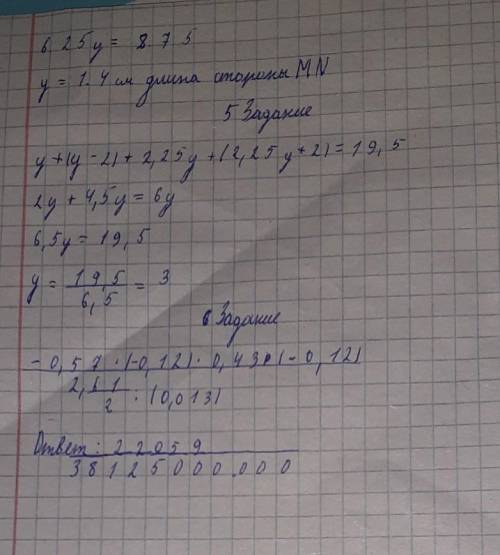 6.25y = 8.75
y = 1.4 см длина стороны MN
5 Задание
y+(y-2)+2,25y+(2,25y+2)=19,5
2y+4,5y=6y
6,5y=19,5
y = 19,5 / 6,5 = 3
6 Задание
-0,57·(-0,12)·0,43·(-0,12)
2,11 / 2 : (0,013)
Ответ: 22059
38125000.000